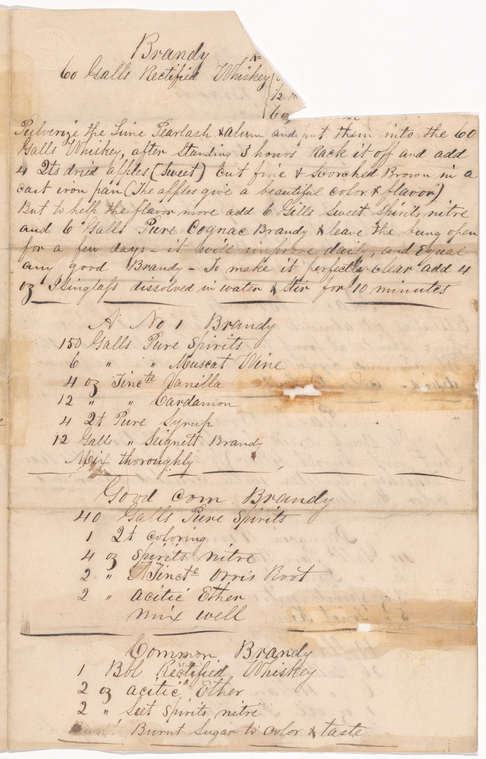 Brandy
60 Galls Rectified Whiskey
12
60
Pulverize the Lime Pearlash & alum and put them into the 60
Galls Whiskey, after standing 3 hours Rack it off and add
4 Qts dried apples (sweet) cut fine & scorched Brown in a
cast iron pan (The apples give a beautiful color & flavor)
But to help the flavor more add 6 Gills Sweet Spirits nitre
and 6 Galls Pure Cognac Brandy & leave the bung open
for a few days - it will improve daily, and Equal
any good Brandy - To make it perfectly clear add 4
oz Isinglass dissolved in water & stir for 10 minutes
A No 1 Brandy
150 Galls Pure Spirits
6 " " Muscat Wine
4 oz Tincte Vanilla
12 " " Cardamon
4 Qt Pure Syrup
12 Galls " Seignett Brandy
Mix thoroughly
Good Com Brandy
40 Galls Pure Spirits
1 Qt Coloring
4 oz Spirits nitre
2 " Tincte Orris Root
2 " Acitic Ether
mix well
Common Brandy
1 Bbl Rectified Whiskey
2 oz Acitic Ether
2 " Sut Spirits nitre
Burnt Sugar to color & taste